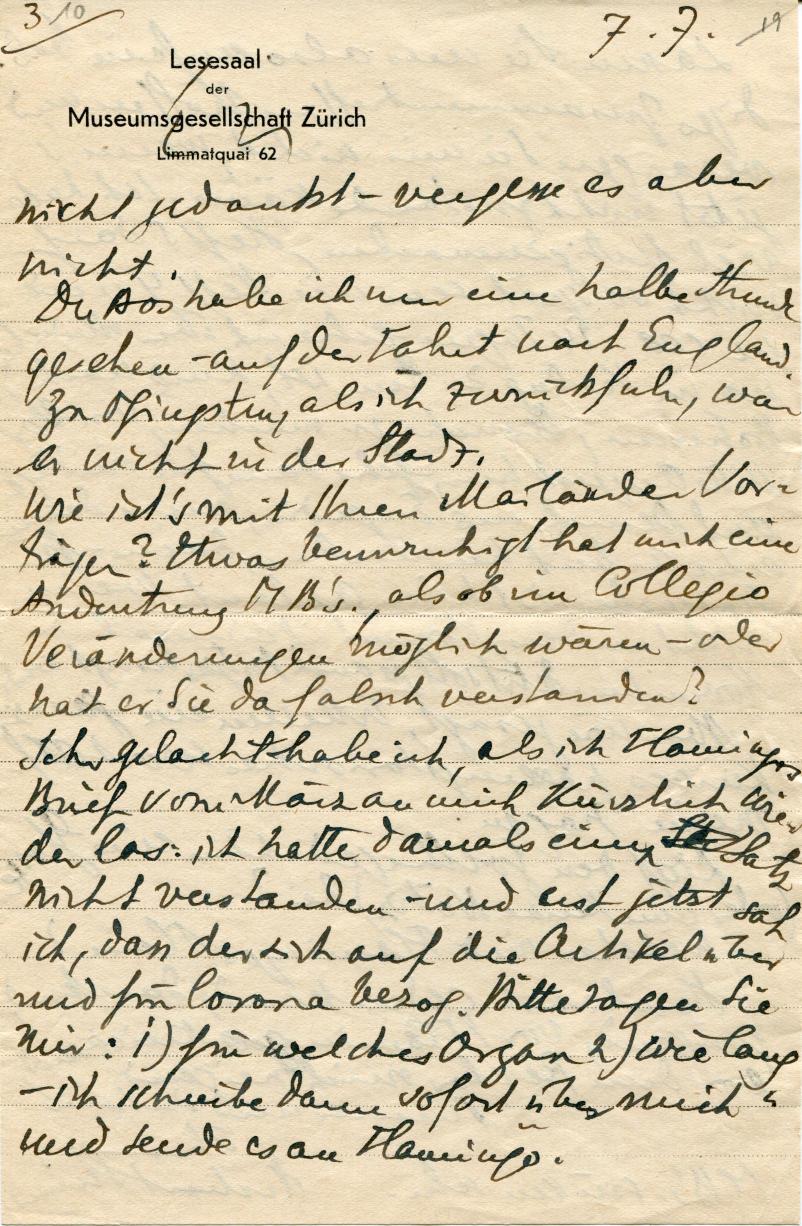 3 10
7.7. 19
Lesesaal
der
Museumsgesellschaft Zürich
Limmatquai 62
nicht gedankt – vergesse es aber
nicht.
habe ich nur eine halbe Stunde
gesehen – auf der Fahrt nach England.
Zu Pfingsten, als ich zurückfuhr, war
er nicht in der Stadt.
Wie ist's mit Ihren Mailänder Vor-
trägen? Etwas beunruhigt hat mich eine
Andeutung MB's., als ob im Collegio
Veränderungen möglich wären – oder
hat er Sie da falsch verstanden?
Sehr gelacht habe ich, als ich Flamingos
Brief vom März an mich kürzlich wie-
der las: ich hatte damals einen Satz
nicht verstanden – und erst jetzt sah
ich, dass der sich auf die Artikel über
und für Corona bezog. Bitte sagen Sie
mir: 1) für welches Organ 2) wie lang
– ich schreibe dann sofort „über mich"
und sende es an Flamingo.